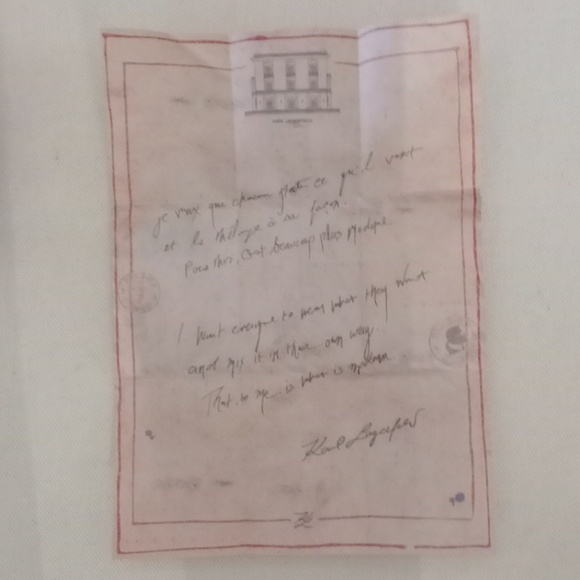 je veux que chacun porte ce qu'il veut
et le mélange à sa façon.
Pour moi, c'est beaucoup plus moderne
I want everyone to wear what they want
and mix it in their own way.
That, to me, is what is modern.
Karl Lagerfeld